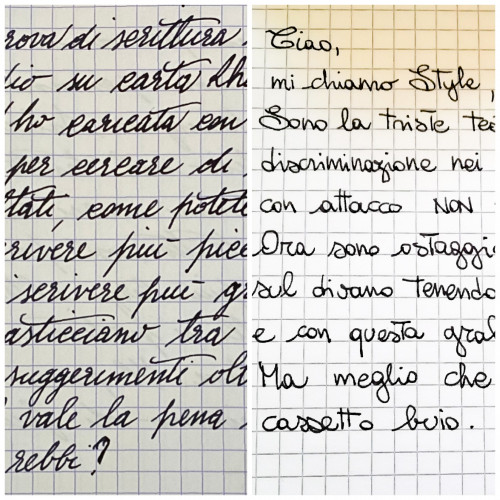 rova di scrittura
su carta Rho
ho caricata con
per cercare di
tati, come potete
rivere più picc
scrivere più gr
asticciano tra
suggerimenti olt
vale la pena
rebbi?
Ciao,
mi chiamo Style,
Sono la triste tes
discriminazione nei
con attacco NON
Ora sono ostaggi
sul divano tenendo
e con questa gra
Ma meglio che
cassetto buio.